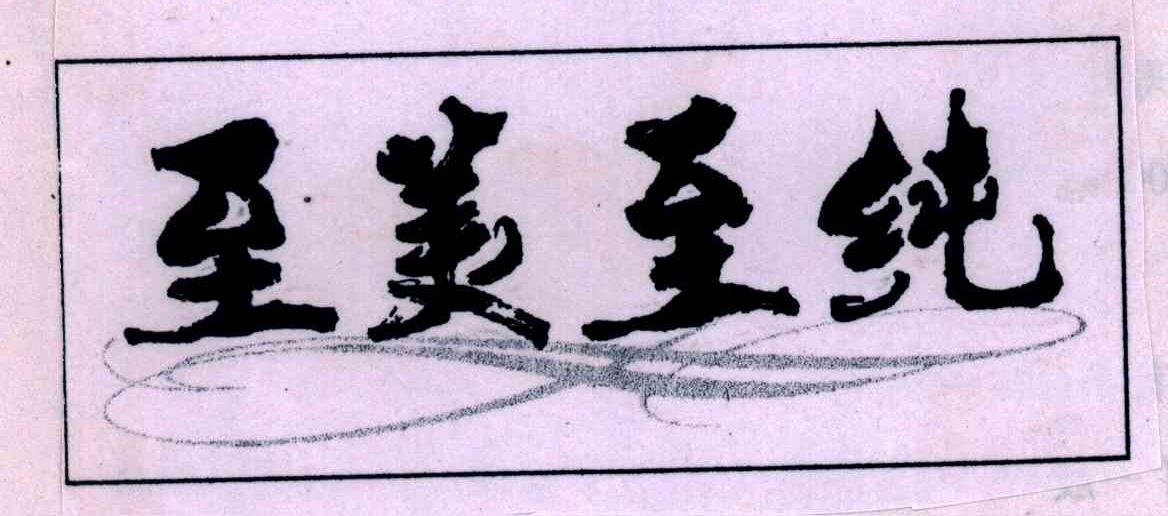 至美至纯